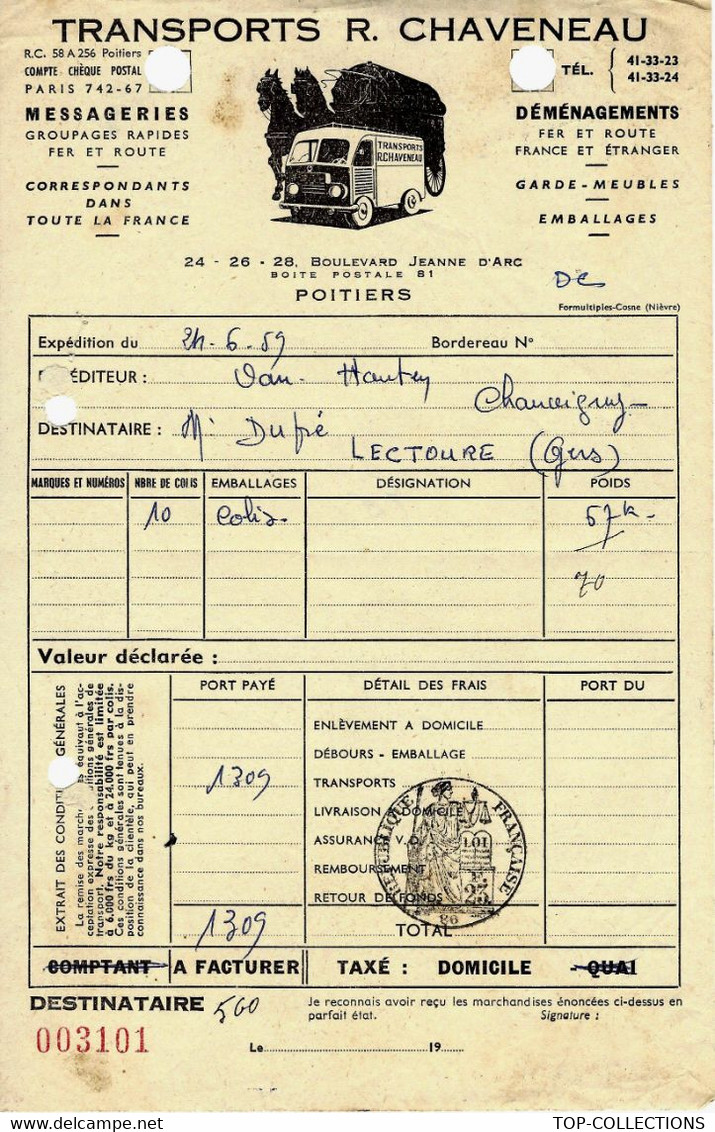 TRANSPORTS R. CHAVENEAU
R.C. 58 A 256 Poitiers
COMPTE CHÈQUE POSTAL
PARIS 742-67
TÉL. { 41-33-23
41-33-24
MESSAGERIES
GROUPAGES RAPIDES
FER ET ROUTE
CORRESPONDANTS
DANS
TOUTE LA FRANCE
TRANSPORTS
R.CHAVENEAU
DÉMÉNAGEMENTS
FER ET ROUTE
FRANCE ET ÉTRANGER
GARDE-MEUBLES
EMBALLAGES
24 - 26 - 28, BOULEVARD JEANNE D'ARC
BOITE POSTALE 81
POITIERS
Formultiples-Cosne (Nièvre)
Expédition du 24-6-59 Bordereau N°
ÉDITEUR : Van-
Chauvigny
DESTINATAIRE : Mr Dupré
LECTOURE (Gers)
MARQUES ET NUMÉROS NBRE DE COLIS EMBALLAGES DÉSIGNATION POIDS
10 Colis 57k
70
Valeur déclarée :
PORT PAYÉ DÉTAIL DES FRAIS PORT DU
EXTRAIT DES CONDIT GÉNÉRALES
La remise des march es équivaut à l'ac-
ceptation expresse des c ditions générales de
transport. Notre responsabilité est limitée
à 6.000 frs du kg et à 24.000 frs par colis.
Ces conditions générales sont tenues à la dis-
position de la clientèle, qui peut en prendre
connaissance dans nos bureaux.
ENLÈVEMENT A DOMICILE
DÉBOURS - EMBALLAGE
1309 TRANSPORTS
LIVRAISON A DOMICILE
ASSURANCE V.D.
REMBOURSEMENT
RETOUR DE FONDS
RÉPUBLIQUE FRANÇAISE
LOI
23
86
1309 TOTAL
COMPTANT A FACTURER TAXÉ : DOMICILE QUAI
DESTINATAIRE 560
Je reconnais avoir reçu les marchandises énoncées ci-dessus en
parfait état. Signature :
003101
Le 19
TOP-COLLECTIONS